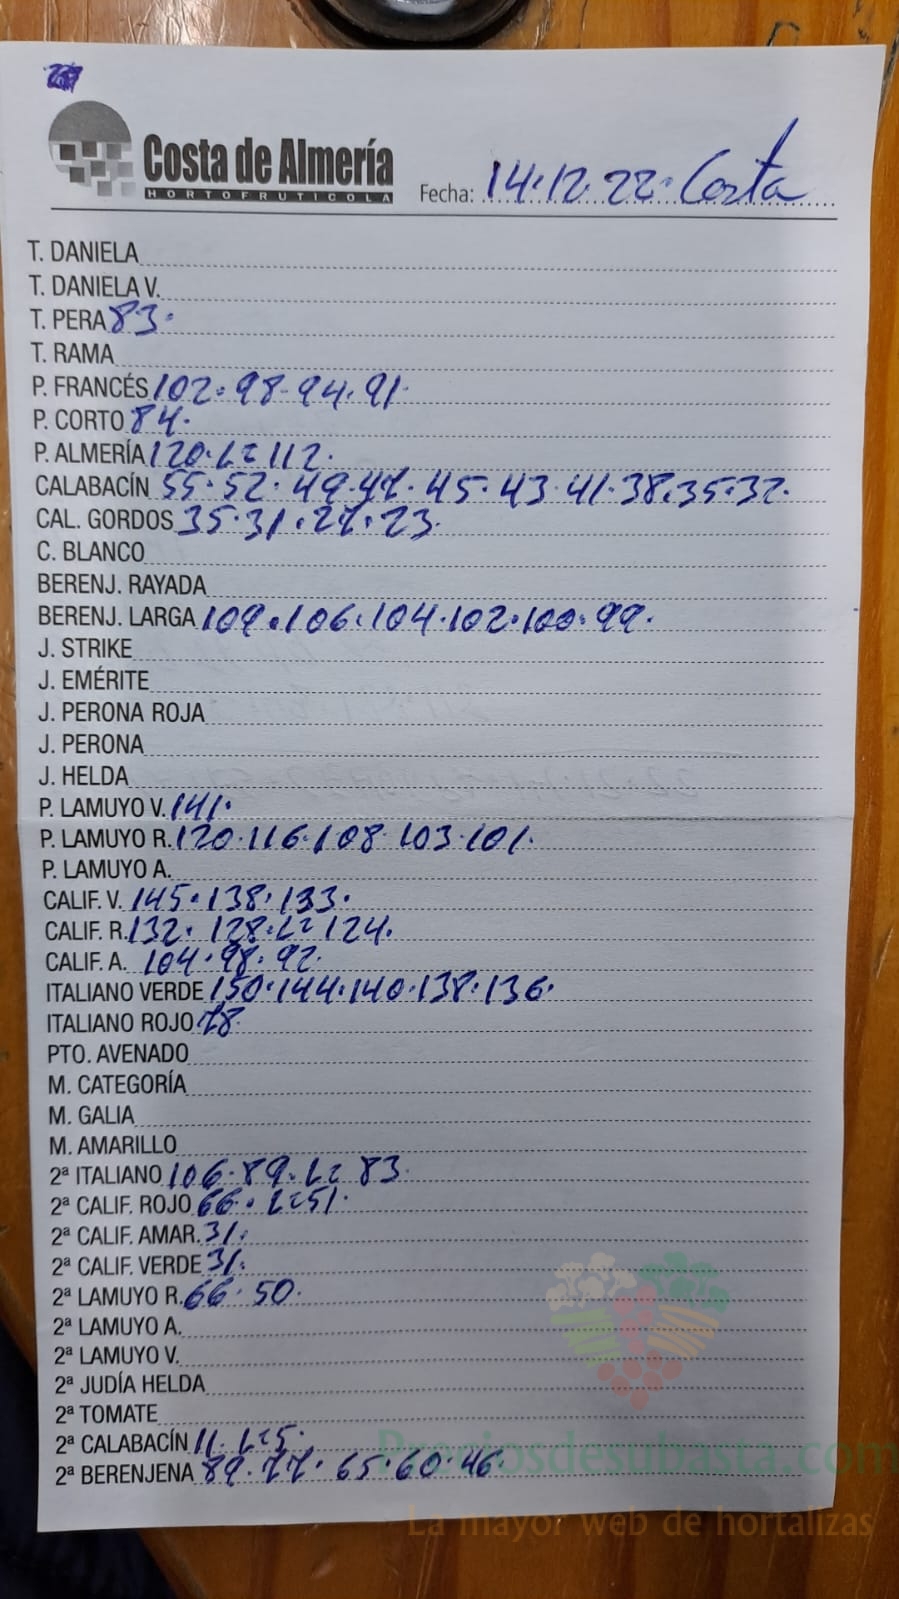 Costa de Almería
HORTOFRUTICOLA
Fecha: 14.12.22. Costa
T. DANIELA
T. DANIELA V.
T. PERA 83.
T. RAMA
P. FRANCÉS 102. 98. 94. 91.
P. CORTO 84.
P. ALMERÍA 120. L= 112.
CALABACÍN 55. 52. 49. 47. 45. 43. 41. 38. 35. 32.
CAL. GORDOS 35. 31. 27. 23.
C. BLANCO
BERENJ. RAYADA
BERENJ. LARGA 109. 106. 104. 102. 100. 99.
J. STRIKE
J. EMÉRITE
J. PERONA ROJA
J. PERONA
J. HELDA
P. LAMUYO V. 141.
P. LAMUYO R. 120. 116. 108. 103. 101.
P. LAMUYO A.
CALIF. V. 145. 138. 133.
CALIF. R. 132. 128. L= 124.
CALIF. A. 104. 98. 92.
ITALIANO VERDE 150. 144. 140. 138. 136.
ITALIANO ROJO 78.
PTO. AVENADO
M. CATEGORÍA
M. GALIA
M. AMARILLO
2ª ITALIANO 106. 89. L= 83.
2ª CALIF. ROJO 66. L= 51.
2ª CALIF. AMAR. 31.
2ª CALIF. VERDE 31.
2ª LAMUYO R. 66. 50.
2ª LAMUYO A.
2ª LAMUYO V.
2ª JUDÍA HELDA
2ª TOMATE
2ª CALABACÍN 11. L= 5.
2ª BERENJENA 89. 77. 65. 60. 46.
Preciosdesubasta.com
La mayor web de hortalizas